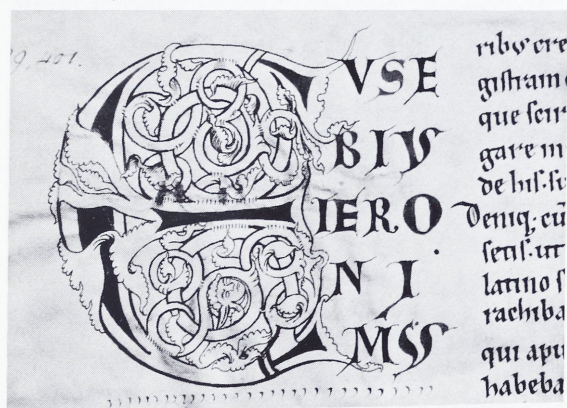 9. 401.
E
VSE
BIVS
IERO
NI
MVS
rib; cre
gistram
que scir
gare in
de his. 
Deniq; cū
setis. ut
latino s
rachiba
qui apu
habeba